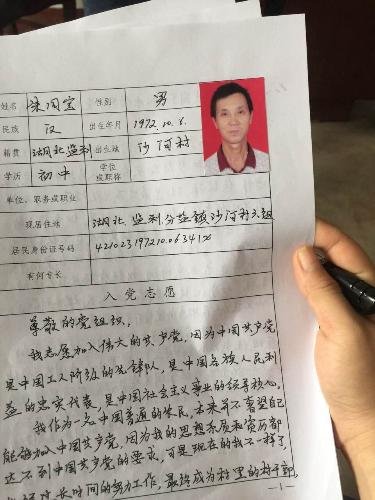 姓名 朱同宝 性别 男
民族 汉 出生年月 1972.10.6.
籍贯 湖北监利 出生地 沙河村
学历 初中 学位或职称
单位、职务或职业
现居住地 湖北监利分盐镇沙河村六组
居民身份证号码
有何专长
入党志愿
尊敬的党组织:
我志愿加入伟大的共产党,因为中国共产党
是中国工人阶级的先锋队,是中国各族人民利
益的忠实代表,是中国社会主义事业的领导核心。
我作为一名中国普通的农民,本来并不奢望自己
能够加入中国共产党,因为我的思想素质和学历都
达不到中国共产党的要求,可是现在的我不一样了
长时间的努力工作,最终成为村里的村干部